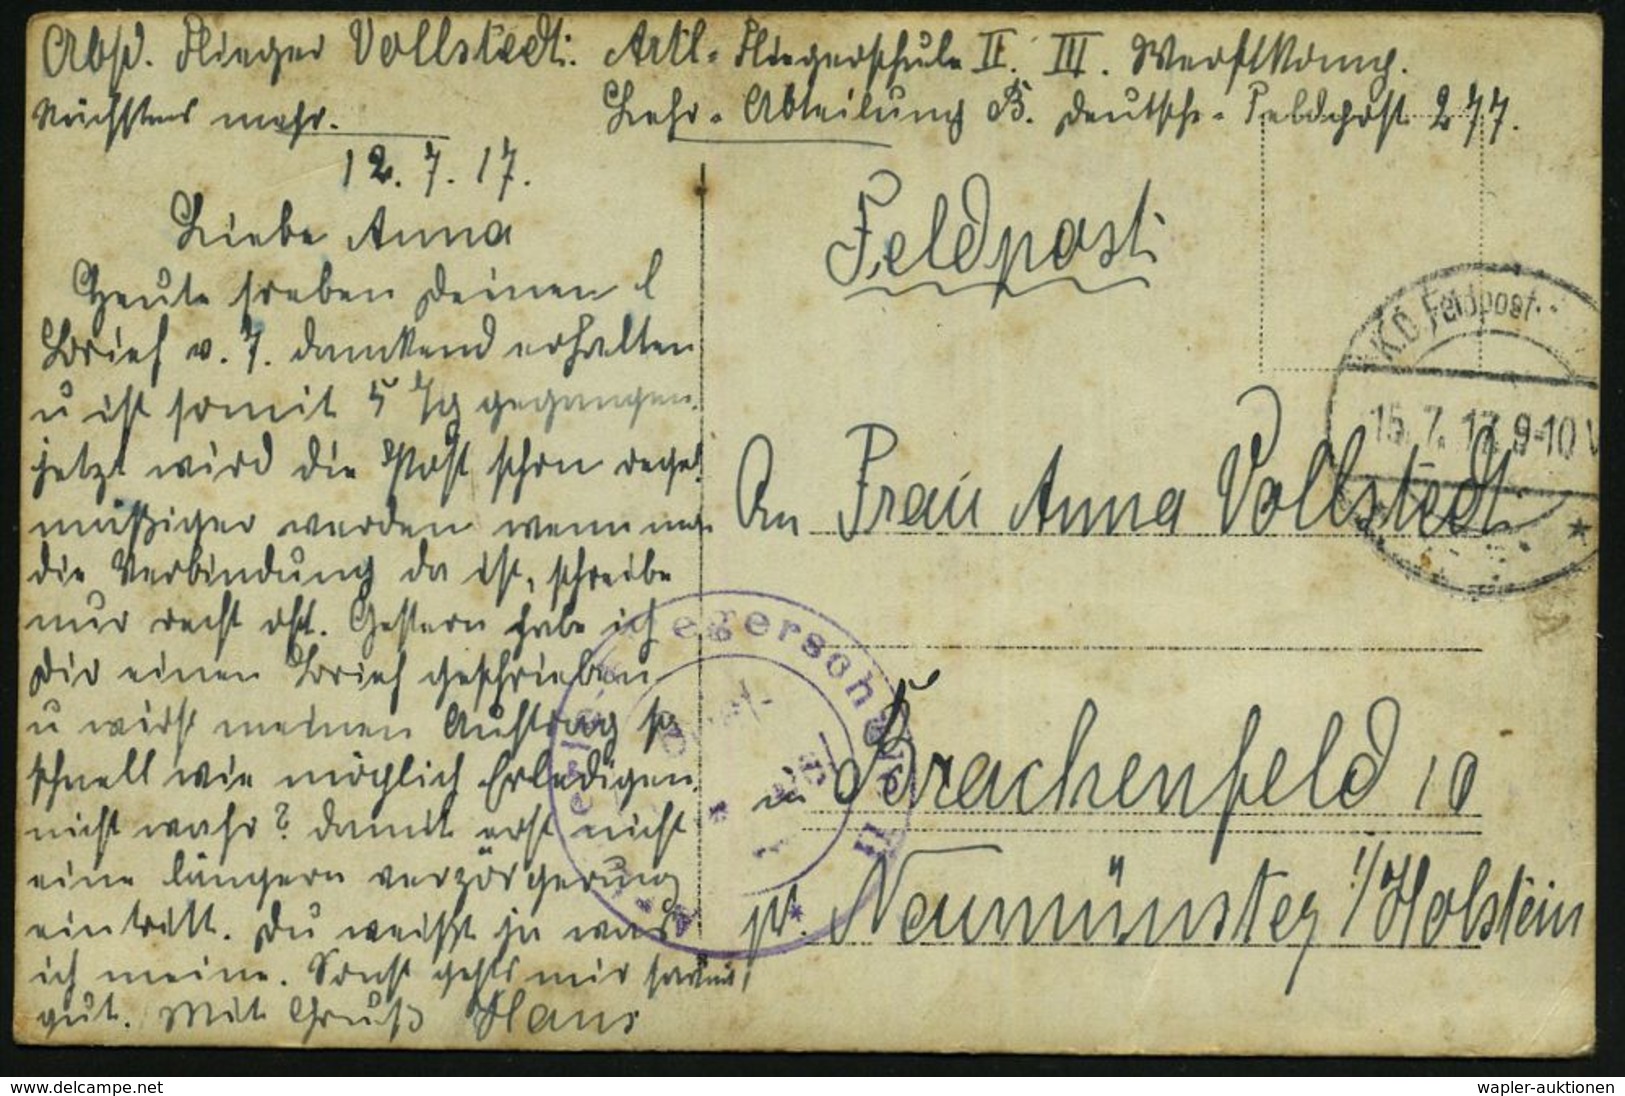 Abs. Flieger Vollstedt. Artl.-Fliegerschule II. III. Werftkomp.
Lehr-Abteilung B. Deutsche-Feldpost 277.
Nächstens mehr.
12.7.17.
Liebe Anna
Heute soeben Deinen l
Brief v. 7. dankend erhalten
u ist somit 5 Tg gegangen.
jetzt wird die Post schon regel
mäßiger werden wenn
die Verbindung da ist, schreibe
nur recht oft. Gestern habe ich
Dir einen Brief geschrieben
u wirst meinen Auftrag so
schnell wie möglich Erledigen.
nicht wahr? damit erst nicht
eine längern verzörgerung
eintritt. Du weißt ja was
ich meine. Sonst gehts mir
gut. Mit Gruß Hans
Feldpost
K.D. Feldpost
15.7.17. 9-10 V
An Frau Anna Vollstedt
in Brachenfeld 10
pr. Neumünster i/Holstein
II
www.delcampe.net
wapler-auktionen